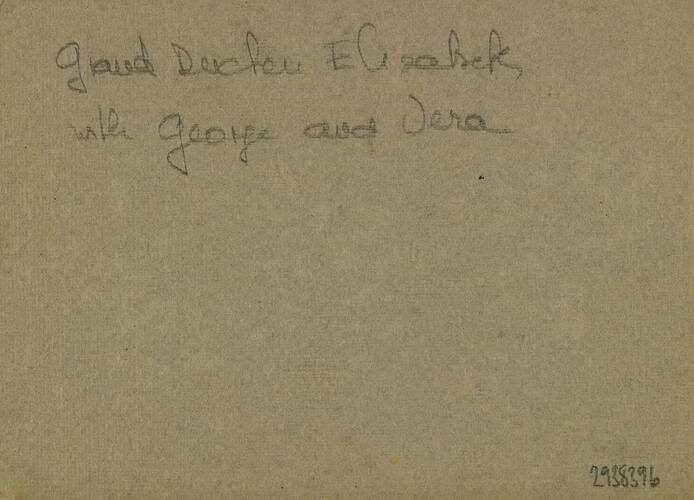 Grand Duchess Elisabeth,
with George and Vera
2938396